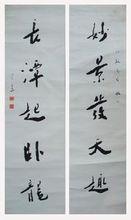 妙景發天趣
長潭起臥龍